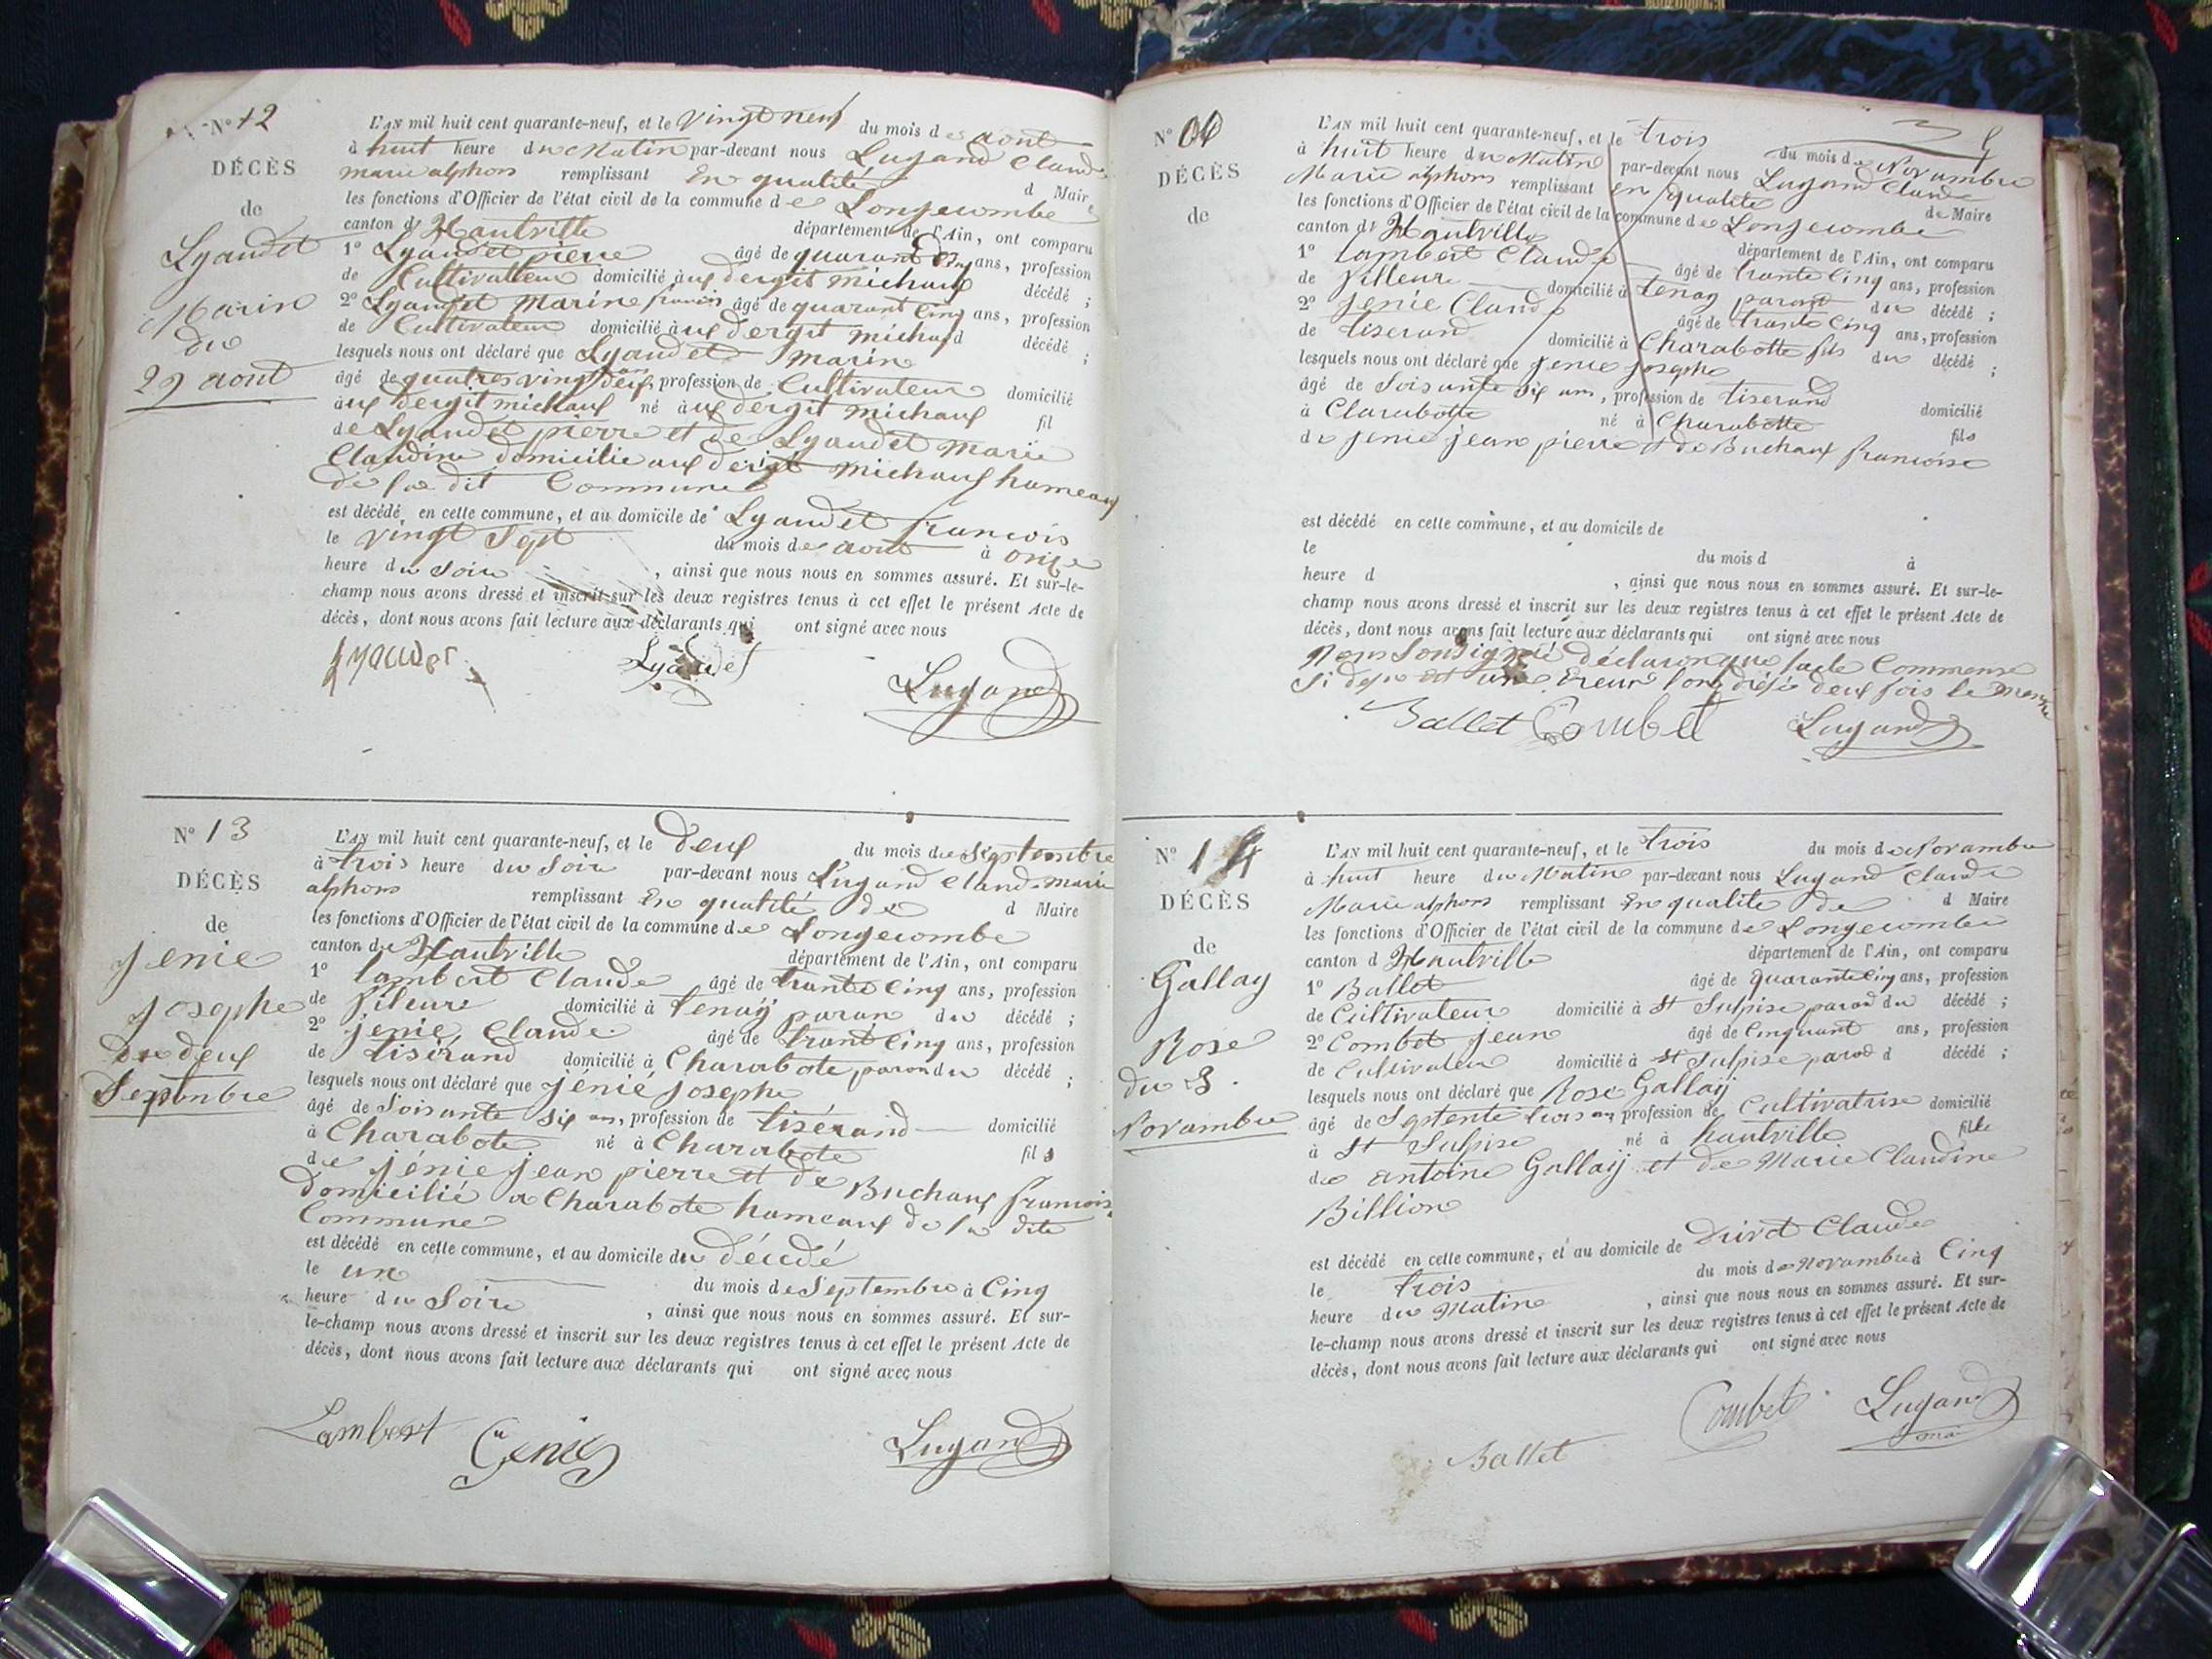 N° 12
DÉCÈS
de
Lyaudet
Marin
du
29 aout
L'AN mil huit cent quarante-neuf, et le vingt neuf du mois de aout
à huit heure du Matin par-devant nous Lugand Claude
marie alphons remplissant En qualité d Maire
les fonctions d'Officier de l'état civil de la commune de Longecombe
canton d'Hautville département de l'Ain, ont comparu
1° Lyaudet pierre âgé de quarant Cinq ans, profession
de Cultivatteur domicilié aux dergit michaux décédé ;
2° Lyaudet Marine francois âgé de quarant Cinq ans, profession
de Cultivateur domicilié aux dergit michaud décédé ;
lesquels nous ont déclaré que Lyaudet Marin
âgé de quatres vingt deux ans, profession de Cultivateur domicilié
aux dergit michaux né aux dergit michaux fil
de Lyaudet pierre et de Lyaudet marie
Claudine domicilie aux dergit michaux hameaux
de la dit Commune
est décédé en cette commune, et au domicile de Lyaudet francois
le vingt Sept du mois de aout à onze
heure du Soir , ainsi que nous nous en sommes assuré. Et sur-le-
champ nous avons dressé et inscrit sur les deux registres tenus à cet effet le présent Acte de
décès, dont nous avons fait lecture aux déclarants qui ont signé avec nous
Lyaudet Lyaudet Lugand
N° 13
DÉCÈS
de
jenie
josephe
du deux
Septenbre
L'AN mil huit cent quarante-neuf, et le deux du mois de Septembre
à trois heure du Soir par-devant nous Lugand Claude marie
alphons remplissant En qualité de d Maire
les fonctions d'Officier de l'état civil de la commune de Longecombe
canton de Hautville département de l'Ain, ont comparu
1° lambert Claude âgé de trante Cinq ans, profession
de fileure domicilié à tenay paran du décédé ;
2° jenie Claude âgé de trant Cinq ans, profession
de tisérand domicilié à Charabote paron du décédé ;
lesquels nous ont déclaré que jénié josephe
âgé de Soisante Six ans, profession de tisérand domicilié
à Charabote né à Charabote fils
de jénie jean pierre et de Buchaux francois
domicilié a Charabote hameaux de la dite
Commune
est décédé en cette commune, et au domicile du décédé
le un du mois de Septembre à Cinq
heure du Soir , ainsi que nous nous en sommes assuré. Et sur-
le-champ nous avons dressé et inscrit sur les deux registres tenus à cet effet le présent Acte de
décès, dont nous avons fait lecture aux déclarants qui ont signé avec nous
Lambert Genie Lugand
N° 06
DÉCÈS
de
L'AN mil huit cent quarante-neuf, et le trois du mois de Novambre
à huit heure du Matin par-devant nous Lugand Claude
Marie alphons remplissant en qualite de Maire
les fonctions d'Officier de l'état civil de la commune de Longecombe
canton d'Hautville département de l'Ain, ont comparu
1° lambert Claude âgé de trante Cinq ans, profession
de filleure domicilié à tenay parant du décédé ;
2° jenie Claude âgé de trante Cinq ans, profession
de tiserand domicilié à Charabotte fils du décédé ;
lesquels nous ont déclaré que jenie josephe
âgé de Soisante Six ans, profession de tiserand domicilié
à Clarabotte né à Charabotte fils
de jenie jean pierre et de Buchaux francoise
est décédé en cette commune, et au domicile de
le du mois d à
heure d , ainsi que nous nous en sommes assuré. Et sur-le-
champ nous avons dressé et inscrit sur les deux registres tenus à cet effet le présent Acte de
décès, dont nous avons fait lecture aux déclarants qui ont signé avec nous
Nous Sousigné déclaron que lacte Commense
Si une Ereur deux fois le
Ballet Combet Lugand
N° 14
DÉCÈS
de
Gallay
Rose
du 3.
Novambre
L'AN mil huit cent quarante-neuf, et le trois du mois de Novambre
à huit heure du Matin par-devant nous Lugand Claude
Marie alphons remplissant En qualite de d Maire
les fonctions d'Officier de l'état civil de la commune de Longecombe
canton d Hautville département de l'Ain, ont comparu
1° Ballet âgé de quarante Cinq ans, profession
de Cultivateur domicilié à St Sulpise paran du décédé ;
2° Combet jean âgé de Cinquant ans, profession
de Cultivateur domicilié à St Sulpise d décédé ;
lesquels nous ont déclaré que Rose Gallaÿ
âgé de Septente trois ans, profession de Cultivatrise domicilié
à St Sulpise né à hautville fille
de antoine Gallaÿ et de Marie Claudine
Billion
est décédé en cette commune, et au domicile de Claude
le trois du mois de Novambre à Cinq
heure du Matin , ainsi que nous nous en sommes assuré. Et sur-
le-champ nous avons dressé et inscrit sur les deux registres tenus à cet effet le présent Acte de
décès, dont nous avons fait lecture aux déclarants qui ont signé avec nous
Ballet Combet Lugand